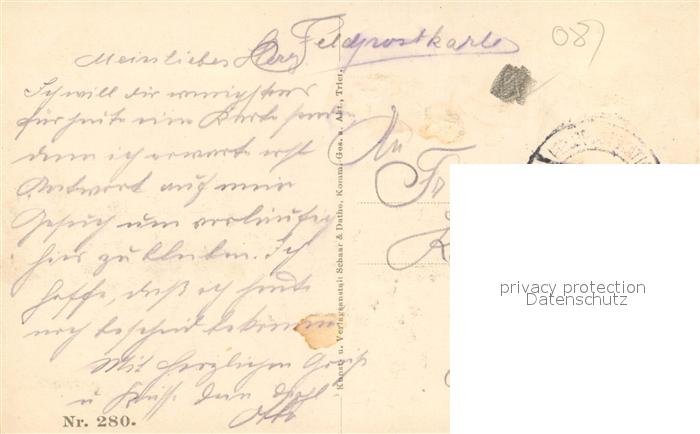 Feldpostkarte
087
Mein liebes Herz
Ich will dir wenigstens
für heute eine Karte senden
denn ich erwarte erst
Antwort auf mein
Gesuch um vorläufig
hier zu bleiben. Ich
hoffe, daß ich heute
noch bescheid bekomme
Mit herzlichen Grüß
u Küsse dein
Otto
Nr. 280.
Kunst- u. Verlagsanstalt Schaar & Dathe, Komm.-Ges. a. Akt., Trier.
An
Fr
privacy protection
Datenschutz